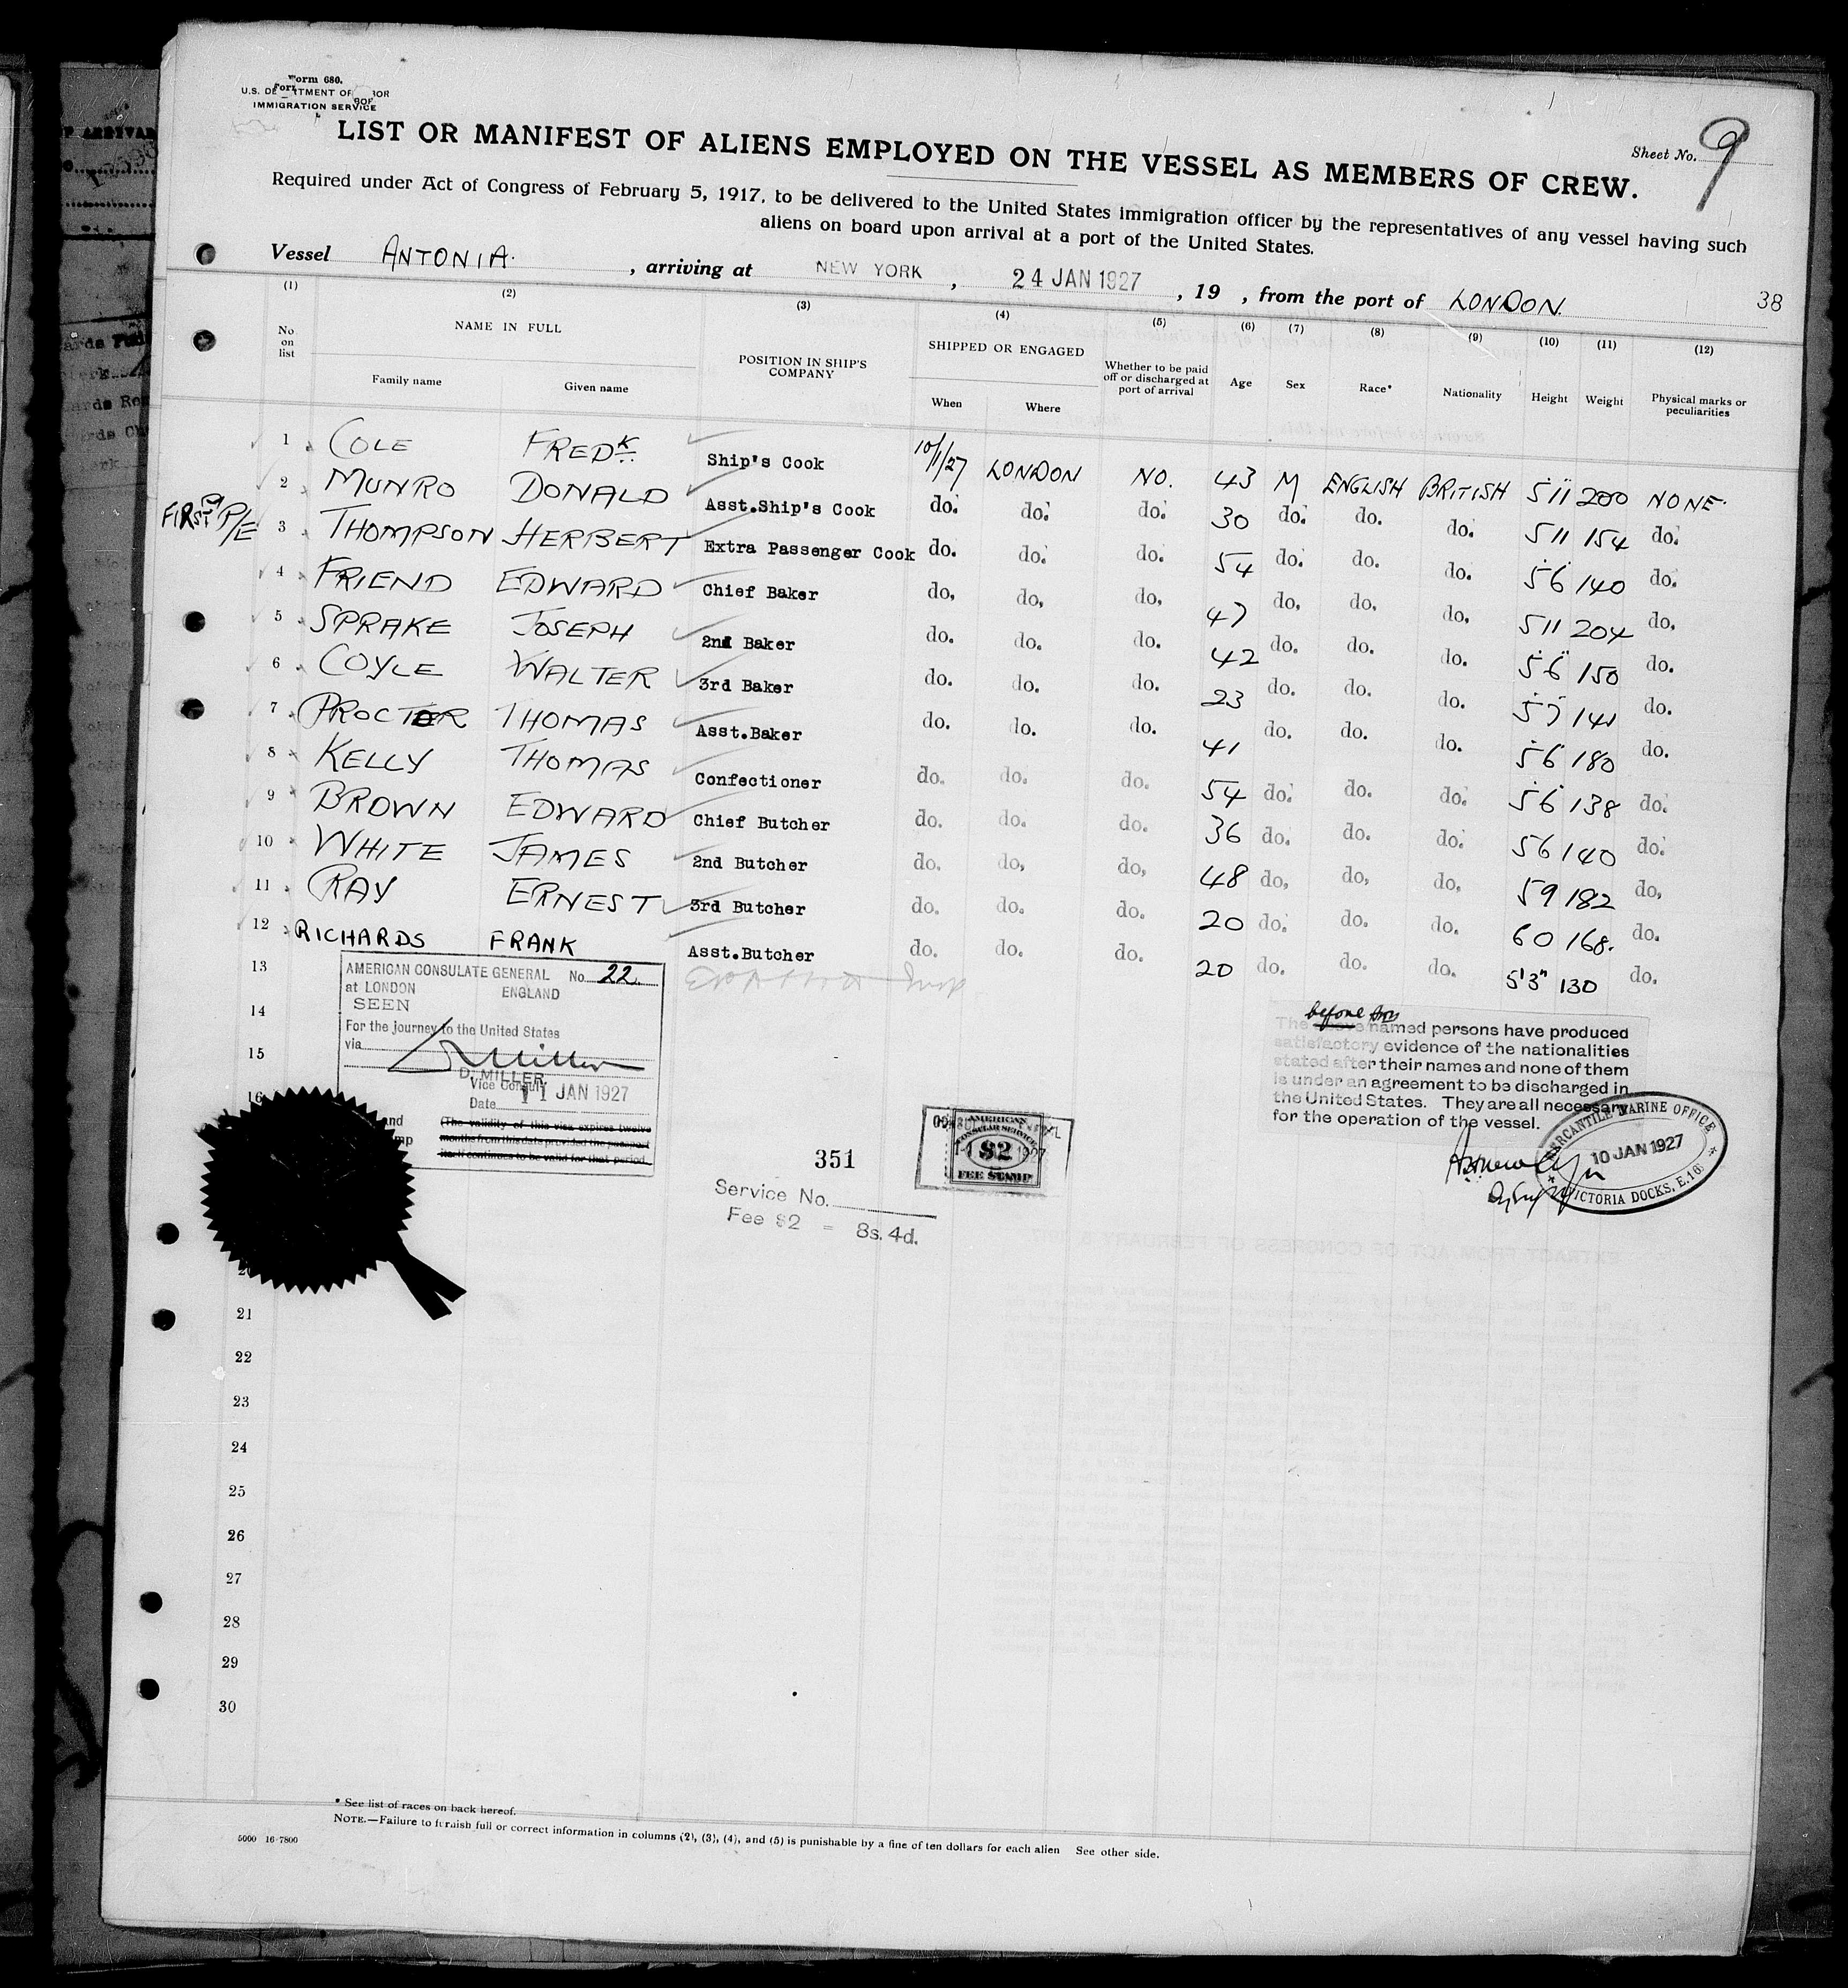 Form 680.
U.S. DEPARTMENT OF LABOR
IMMIGRATION SERVICE
Sheet No. 9
LIST OR MANIFEST OF ALIENS EMPLOYED ON THE VESSEL AS MEMBERS OF CREW.
Required under Act of Congress of February 5, 1917, to be delivered to the United States immigration officer by the representatives of any vessel having such
aliens on board upon arrival at a port of the United States.
Vessel ANTONIA. , arriving at NEW YORK , 24 JAN 1927 , 19 , from the port of LONDON. 38
(1) (2) (3) (4) (5) (6) (7) (8) (9) (10) (11) (12)
No on list NAME IN FULL Family name Given name POSITION IN SHIP'S COMPANY SHIPPED OR ENGAGED When Where Whether to be paid off or discharged at port of arrival Age Sex Race* Nationality Height Weight Physical marks or peculiarities
1 COLE FREDK Ship's Cook 10/1/27 LONDON NO. 43 M ENGLISH BRITISH 5 11 200 NONE.
2 MUNRO DONALD Asst.Ship's Cook do. do. do. 30 do. do. do. 5 11 154 do.
FIRST P/E 3 THOMPSON HERBERT Extra Passenger Cook do. do. do. 54 do. do. do. 5 6 140 do.
4 FRIEND EDWARD Chief Baker do. do. do. 47 do. do. do. 5 11 204 do.
5 SPRAKE JOSEPH 2nd Baker do. do. do. 42 do. do. do. 5 6 150 do.
6 COYLE WALTER 3rd Baker do. do. do. 23 do. do. do. 5 5 141 do.
7 PROCTER THOMAS Asst.Baker do. do. do. 41 do. do. do. 5 6 180 do.
8 KELLY THOMAS Confectioner do. do. do. 54 do. do. do. 5 6 138 do.
9 BROWN EDWARD Chief Butcher do. do. do. 36 do. do. do. 5 6 140 do.
10 WHITE JAMES 2nd Butcher do. do. do. 48 do. do. do. 5 9 182 do.
11 RAY ERNEST 3rd Butcher do. do. do. 20 do. do. do. 6 0 168. do.
12 RICHARDS FRANK Asst.Butcher do. do. do. 20 do. do. do. 5'3" 130 do.
13
14
15
16
21
22
23
24
25
26
27
28
29
30
AMERICAN CONSULATE GENERAL No. 22.
at LONDON ENGLAND
SEEN
For the journey to the United States
via
D. MILLER
Vice Consul
Date 11 JAN 1927
(The validity of this visa expires twelve
months from this date provided the passport
itself continues to be valid for that period.
351
Service No.
Fee $2 = 8s. 4d.
AMERICAN
CONSULAR SERVICE
$2
FEE STAMP
The before named persons have produced
satisfactory evidence of the nationalities
stated after their names and none of them
is under an agreement to be discharged in
the United States. They are all necessary
for the operation of the vessel.
MERCANTILE MARINE OFFICE
10 JAN 1927
VICTORIA DOCKS, E.16
* See list of races on back hereof.
NOTE.—Failure to furnish full or correct information in columns (2), (3), (4), and (5) is punishable by a fine of ten dollars for each alien See other side.
5000 16-7800